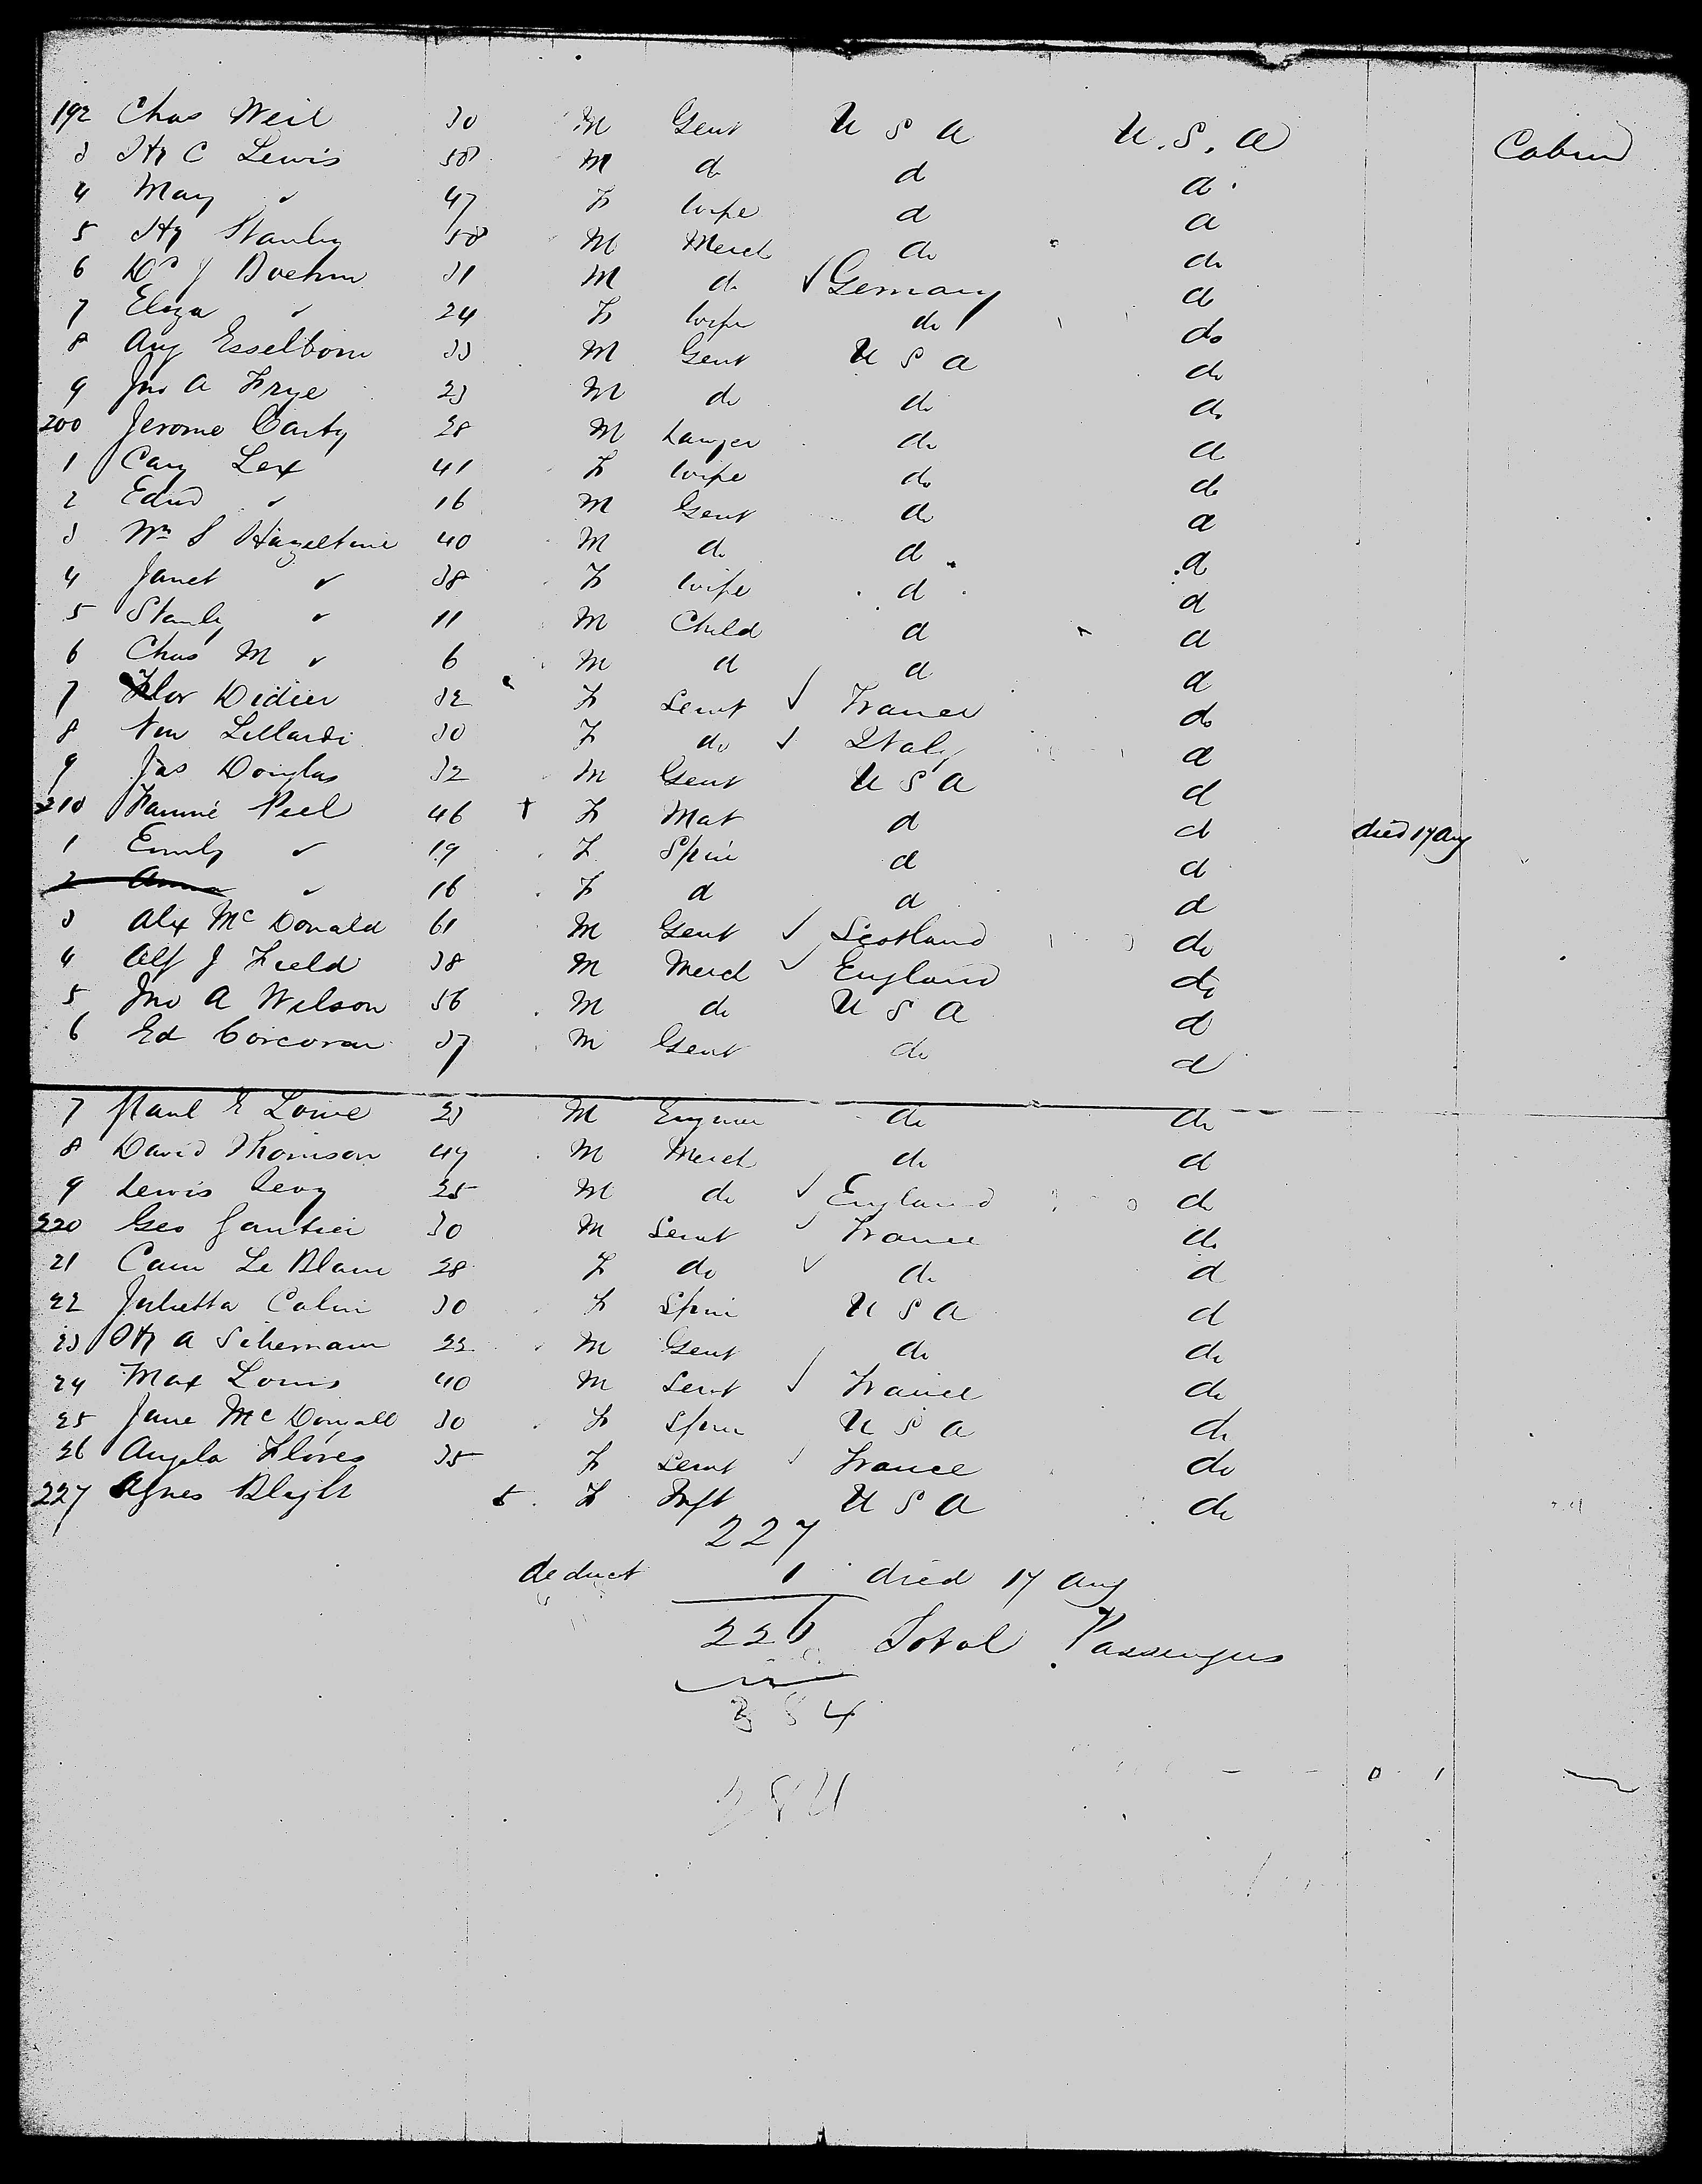 192 Chas Weil 30 M Gent U S A U.S.A Cabin
3 Hy C Lewis 50 M do d d
4 Mary " 47 F Wife d d
5 Hy Stanley 50 M Merch do do
6 Wm J Boehm 31 M do ✓ Germany d
7 Eliza " 24 F Wife do do
8 Aug Esselborn 33 M Gent U S A do
9 Jno A Frye 23 M do do do
200 Jerome Carty 28 M Lawyer do d
1 Cary Lex 41 F Wife do do
2 Edwd " 16 M Gent do d
3 Wm S Hazeltine 40 M do d d
4 Janet " 38 F Wife d d
5 Stanley " 11 M Child d d
6 Chas M " 6 M d d d
7 Flor Didier 32 F Servt ✓ France do
8 Lellardi 30 F do ✓ Italy d
9 Jas Douglas 32 M Gent U S A d
210 Fannie Peel 46 + F Mat d d died 17 Aug
1 Emily " 19 F Spin d d
2 Anna " 16 F d d d
3 Alex McDonald 61 M Gent ✓ Scotland do
4 Alf J Field 38 M Merch ✓ England do
5 Jno A Wilson 56 M do U S A d
6 Ed Corcoran 37 M Gent do d
7 Paul E Lowe 23 M Engineer do do
8 David Thomson 49 M Merch do d
9 Lewis Levy 25 M do ✓ England do
220 Geo Gautier 30 M Servt ✓ France do
21 Cam Le Blanc 28 F do ✓ do d
22 Julietta Colin 30 F Spin U S A d
23 Hy A 22 M Gent do do
24 Max Louis 40 M Servt ✓ France do
25 Jane McDougall 30 F Spin U S A do
26 Angela Flores 35 F Servt ✓ France do
227 Agnes Blight 5 F Inft U S A do
227
deduct 1 died 17 Aug
226 Total Passengers
384
384